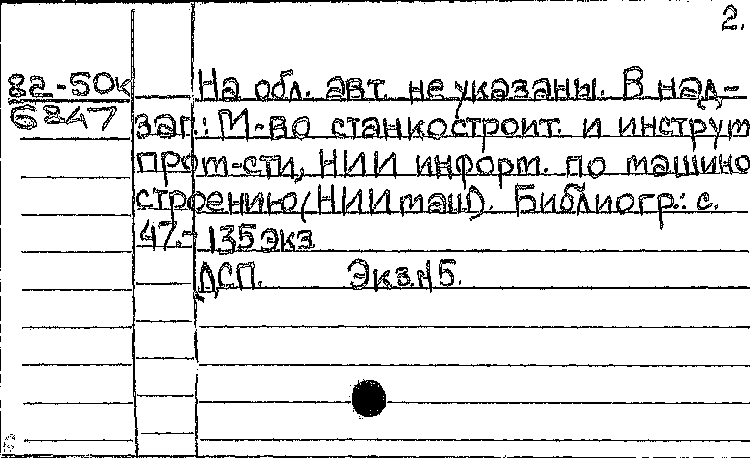 2.
82-50к
6847
На обл. авт. не указаны. В над-
заг.: М-во станкостроит. и инструм
пром-сти, НИИ информ. по машино
строению (НИИмаш). Библиогр.: с.
47.- 135 экз
ДСП. Экз.№5.